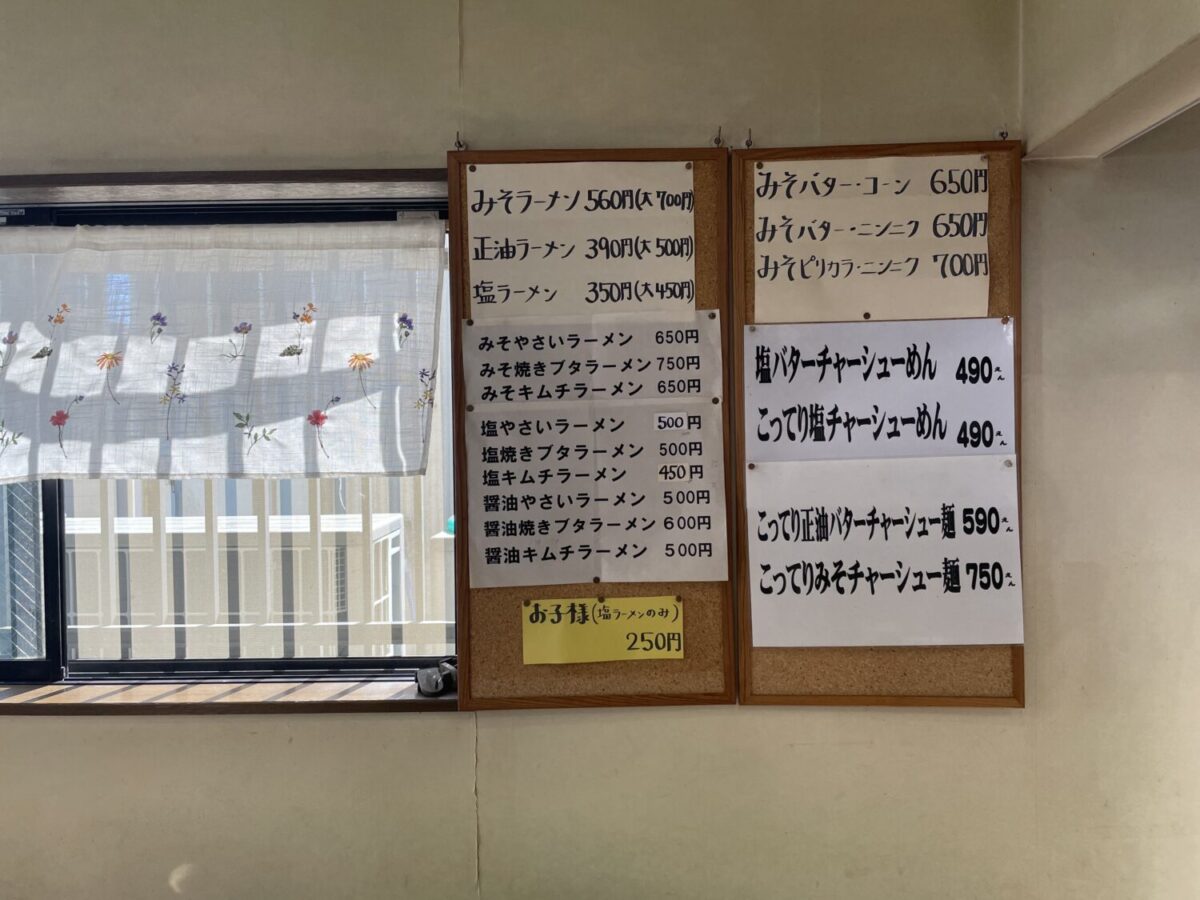 みそラーメン 560円(大700円)
正油ラーメン 390円(大500円)
塩ラーメン 350円(大450円)
みそやさいラーメン 650円
みそ焼きブタラーメン 750円
みそキムチラーメン 650円
塩やさいラーメン 500円
塩焼きブタラーメン 500円
塩キムチラーメン 450円
醤油やさいラーメン 500円
醤油焼きブタラーメン 600円
醤油キムチラーメン 500円
お子様(塩ラーメンのみ)
250円
みそバター・コーン 650円
みそバター・ニンニク 650円
みそピリカラ・ニンニク 700円
塩バターチャーシューめん 490えん
こってり塩チャーシューめん 490えん
こってり正油バターチャーシュー麺 590えん
こってりみそチャーシュー麺 750えん